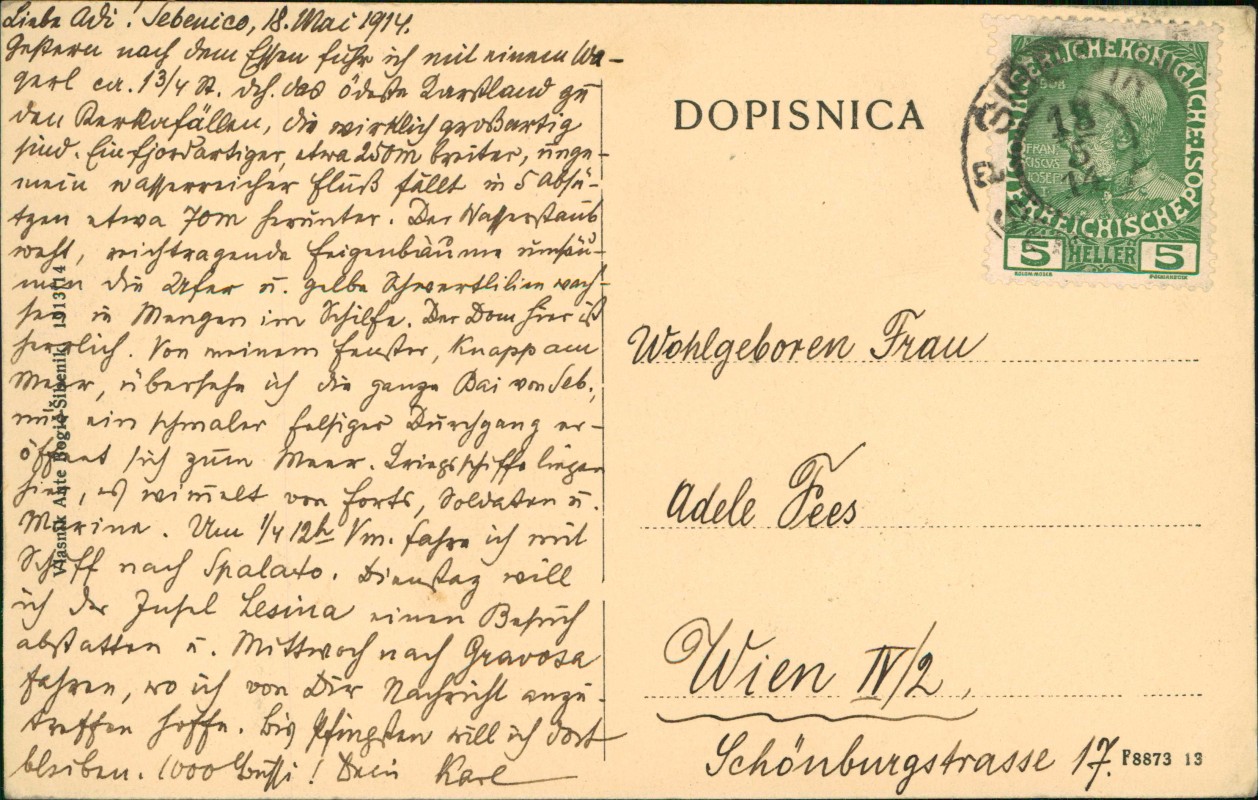 Liebe Adi! Sebenico, 18. Mai 1914.
Gestern nach dem Essen fuhr ich mit einem Wa-
gerl ca. 1 3/4 St. dch. das ödeste Karstland zu
den Kerkafällen, die wirklich großartig
sind. Ein fjordartiger, etwa 250m breiter, unge-
mein wasserreicher Fluß fällt in 5 Absä-
tzen etwa 70m herunter. Der Wasserstaub
weht, reichtragende Feigenbäume umsäu-
men die Ufer u. gelbe Schwertlilien wach-
sen in Mengen im Schilfe. Der Dom hier ist
herrlich. Von meinem Fenster, knapp am
Meer, übersehe ich die ganze Bai von Seb.,
nur ein schmaler felsiger Durchgang er-
öffnet sich zum Meer. Kriegsschiffe liegen
hier, es wimmelt von Forts, Soldaten u.
Marine. Um 1/4 12h Vm. fahre ich mit
Schiff nach Spalato. Dienstag will
ich der Insel Lesina einen Besuch
abstatten u. Mittwoch nach Gravosa
fahren, wo ich von Dir Nachricht anzu-
treffen hoffe. Bis Pfingsten will ich dort
bleiben. 1000 Bussi! Dein Karl
Vlasnik Ante Bogić Šibenik 1913/14
DOPISNICA
KAISERLICHE KÖNIGLICHE
ÖSTERREICHISCHE POST
FRAN
CISCVS
IOSEPH
5 HELLER 5
18
5
14
Wohlgeboren Frau
Adele Fees
Wien IV/2,
Schönburgstrasse 17.
F8873 13